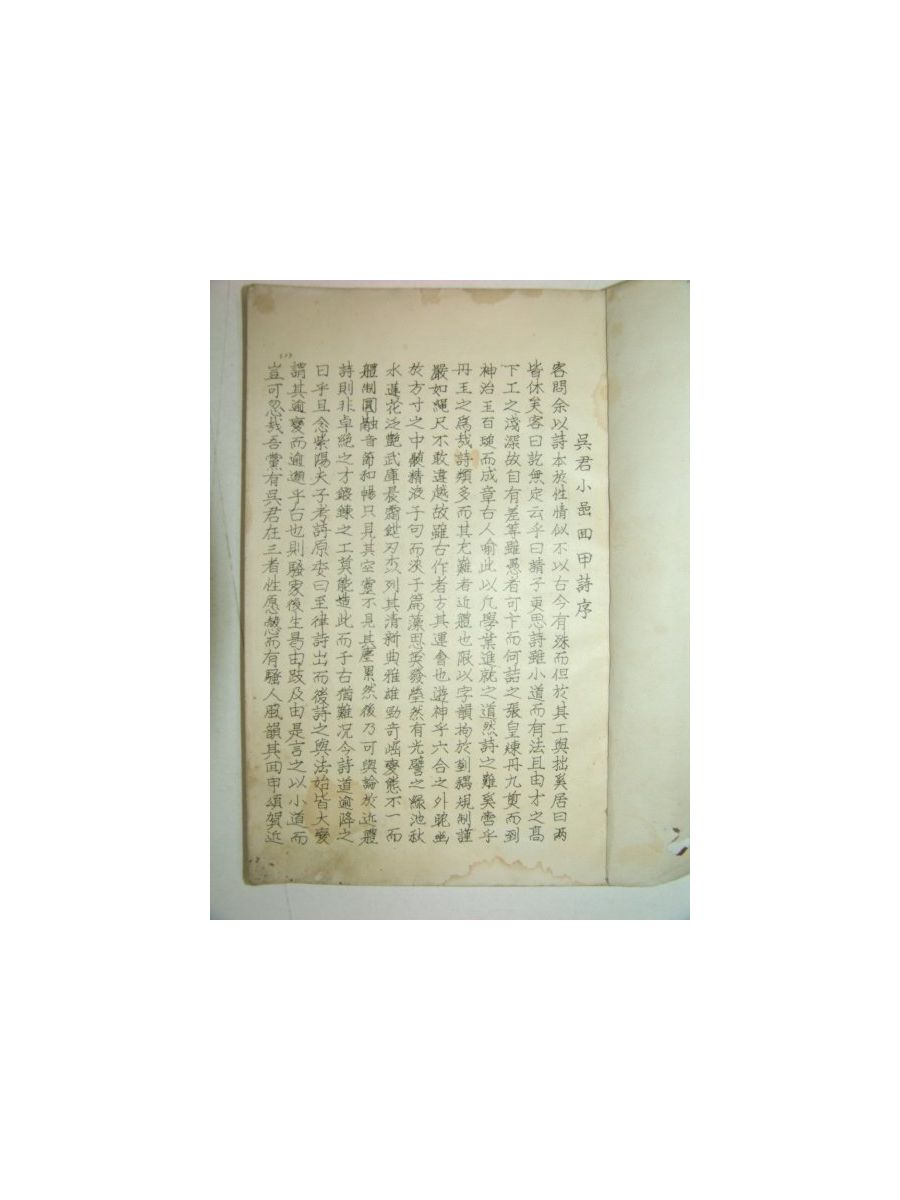 吳君小邑回甲詩序
客問余以詩本於性情似不以古今有殊而但於其工與拙奚居曰兩
皆休矣客曰訖無定云乎曰請子更思詩雖小道而有法且由才之高
下工之淺深故自有差等雖愚者可卞而何詰之張皇煉丹九剪而到
神治玉百琢而成章古人喻此以凢學業進就之道然詩之難奚啻乎
丹玉之爲哉詩類多而其尤難者近體也限以字韻拘於對耦規制謹
嚴如繩尺不敢違越故雖古作者方其運會也遊神乎六合之外
於方寸之中精液于句而于篇藻思英發瑩然有光譬之綠池秋
水蓮花泛艶武庫晨霜列其清新典雅雄勁奇崛變態不一而
體制圓融音節和暢只見其空靈不見其塵累然後乃可與論於近體
詩則非卓絶之才鍛鍊之工莫能造此而于古猶難况今詩道逾降之
曰乎且念紫陽夫子考詩原委曰至律詩出而後詩之與法始皆大變
謂其逾變而逾邈乎古也則騷家後生曷由跂及由是言之以小道而
豈可忽哉吾黨有吳君在三者性愿慤而有騷人風韻其回甲頌賀近